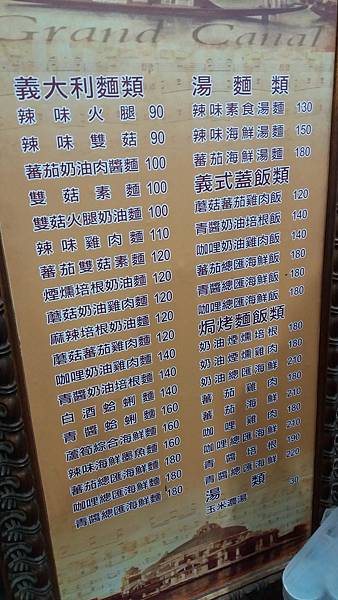 Grand Canal
義大利麵類
辣味火腿 90
辣味雙菇 90
蕃茄奶油肉醬麵 100
雙菇素麵 100
雙菇火腿奶油麵 100
辣味雞肉麵 110
蕃茄雙菇素麵 120
煙燻培根奶油麵 120
蘑菇奶油雞肉麵 120
麻辣培根奶油麵 120
蘑菇蕃茄雞肉麵 120
咖哩奶油雞肉麵 140
青醬奶油培根麵 140
白酒蛤蜊麵 140
青醬蛤蜊麵 160
蘆筍綜合海鮮麵 160
辣味海鮮墨魚麵 160
蕃茄總匯海鮮麵 180
咖哩總匯海鮮麵 180
青醬總匯海鮮麵 180
湯麵類
辣味素食湯麵 130
辣味海鮮湯麵 150
蕃茄海鮮湯麵 180
義式蓋飯類
蘑菇蕃茄雞肉飯 120
青醬奶油培根飯 140
咖哩奶油雞肉飯 140
蕃茄總匯海鮮飯 180
青醬總匯海鮮飯 180
咖哩總匯海鮮飯 180
焗烤麵飯類
奶油煙燻培根 180
奶油煙燻雞肉 180
奶油總匯海鮮 210
蕃茄雞肉 180
蕃茄海鮮 210
咖哩雞肉 180
咖哩總匯海鮮 210
青醬培根 190
青醬總匯海鮮 220
湯類
玉米濃湯 30